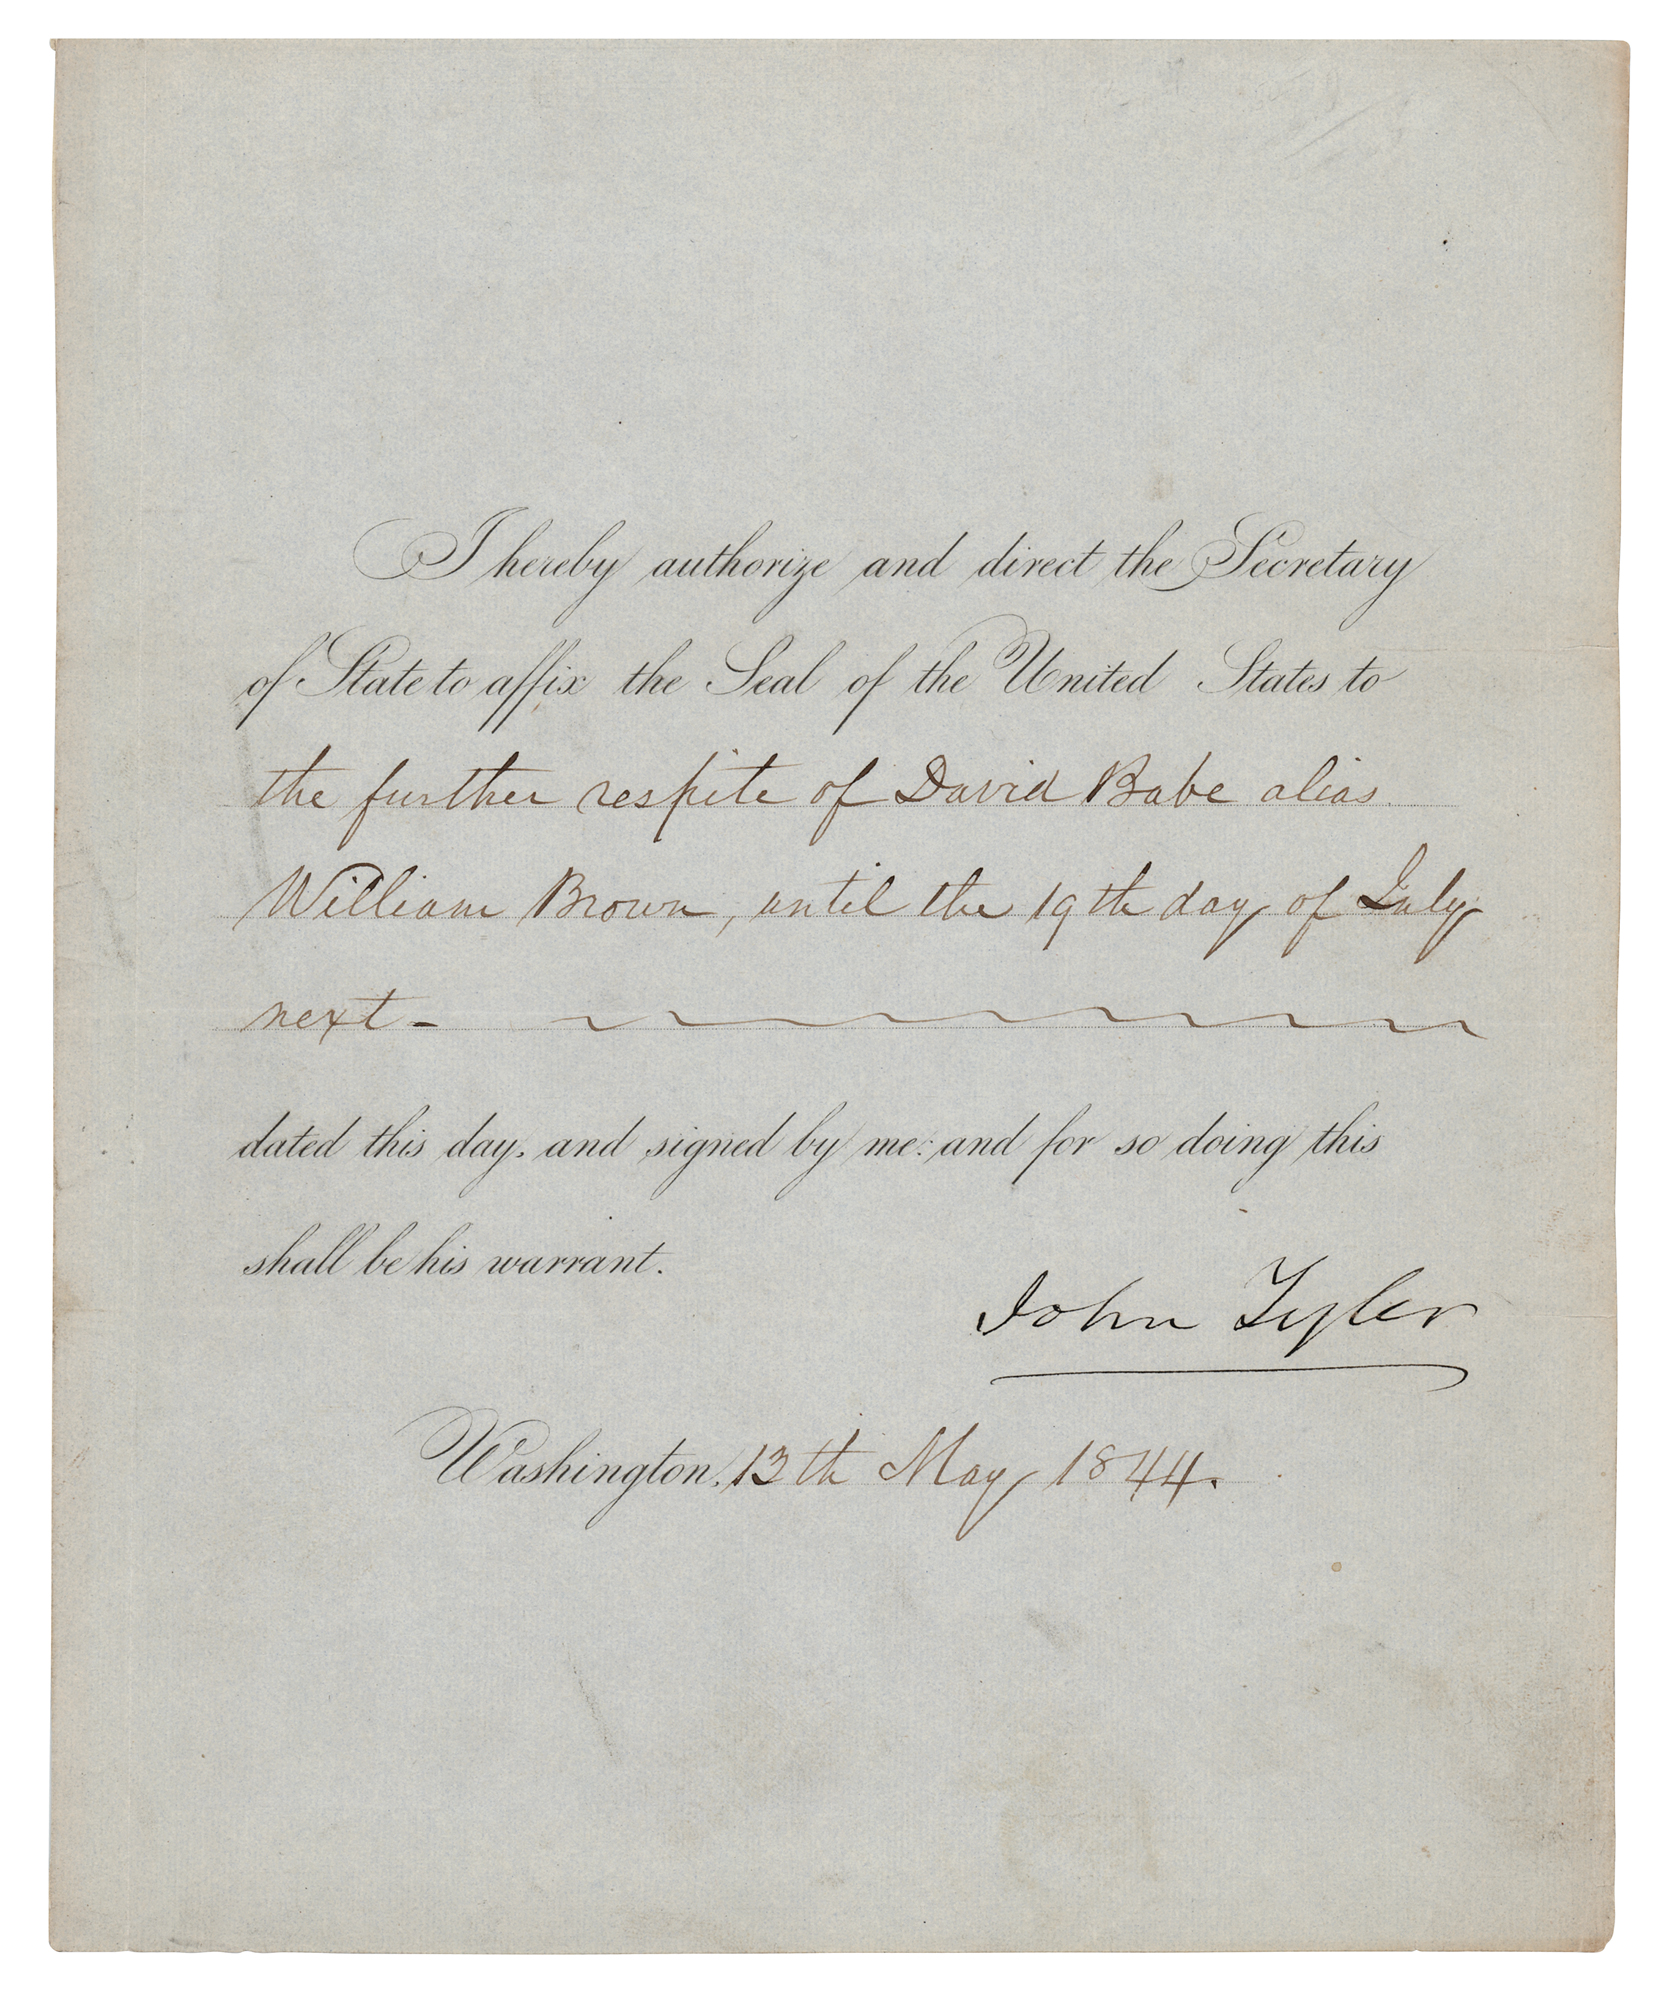 I hereby authorize and direct the Secretary
of State to affix the Seal of the United States to
the further respite of David Babe alias
William Brown, until the 19th day of July
next -
dated this day, and signed by me: and for so doing this
shall be his warrant.
John Tyler
Washington, 13th May 1844.